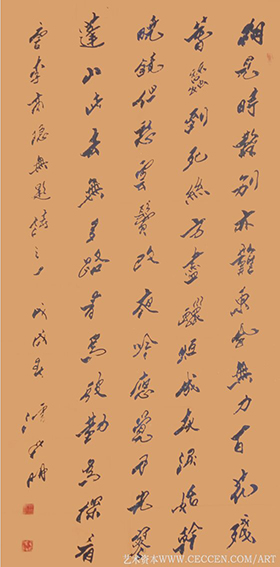 相見時難別亦難東風無力百花殘
春蠶到死絲方盡蠟炬成灰淚始幹
曉鏡但愁雲鬢改夜吟應覺月光寒
蓬山此去無多路青鳥殷勤為探看
李商隱無題詩之一
明
艺术资本WWW.CECCEN.COM/ART